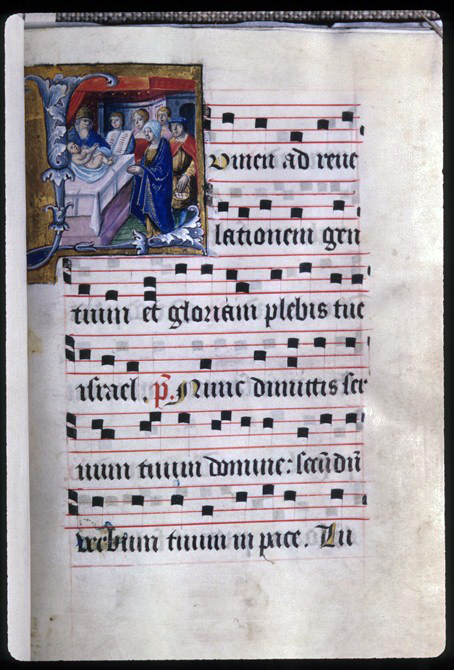 Lumen ad reve
lationem gen
tium et gloriam plebis tue
israel. p̄s. Nunc dimittis ser
uum tuum domine: secūdū
verbum tuum in pace. Lu